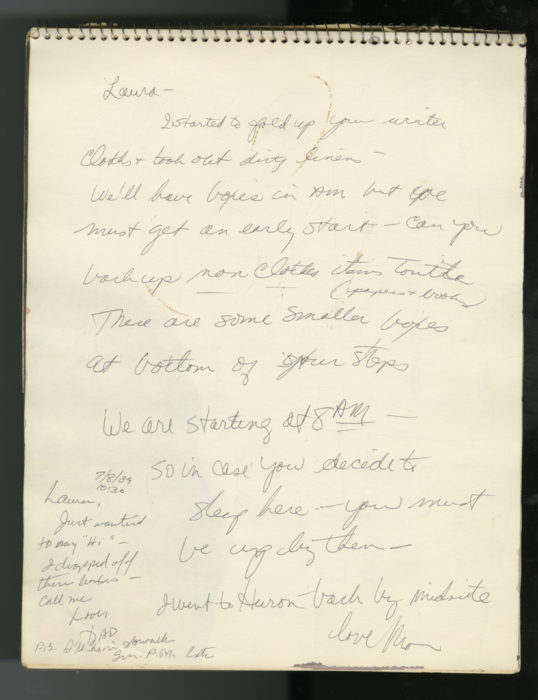 Laura -
I started to fold up your winter
cloths + took out dirty linens -
We'll have boxes in AM but we
must get an early start - can you
pack up non clothes items tonite
(papers + books)
There are some smaller boxes
at bottom of your steps
We are starting at 8 AM -
so in case you decide to
sleep here - you must
be up by then -
I went to Huron - back by midnite
love Mom
7/8/89
10:30
Laura,
Just wanted
to say "Hi" -
I dropped off
these
call me
Love
DAD
P.S. I'll be in
Sun. P.M. late